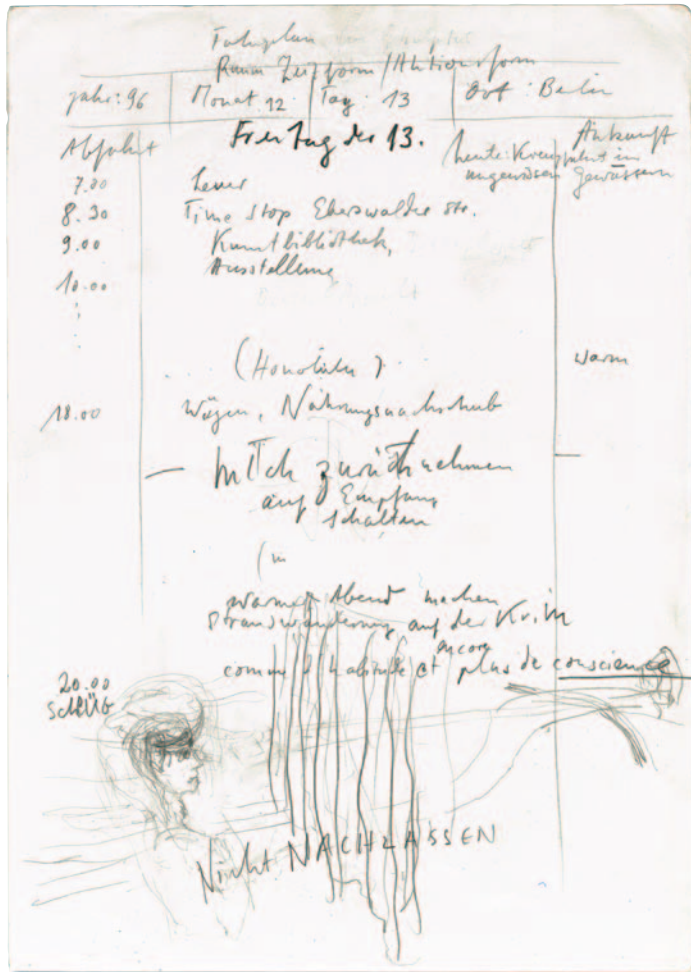 Fahrplan
Raum Zeitform / Aktionsform
Jahr: 96 Monat 12 Tag 13 Ort: Berlin
Abfahrt Freitag der 13. Ankunft
heute: Kreuzfahrt in
ungewissen Gewässern
7.00
8.30 Time Stop Eberswalder Str.
9.00 Kunstbibliothek,
Ausstellung
10.00
(Honolulu) warm
18.00 Wägen, Nahrungsnachschub
— mich zurücknehmen —
auf Empfang
schalten
(in
warmer Abend machen
Strandwanderung auf der Krim
encore
comme d'habitude et plus de conscience
20.00
Schlüß
Nicht NACHLASSEN